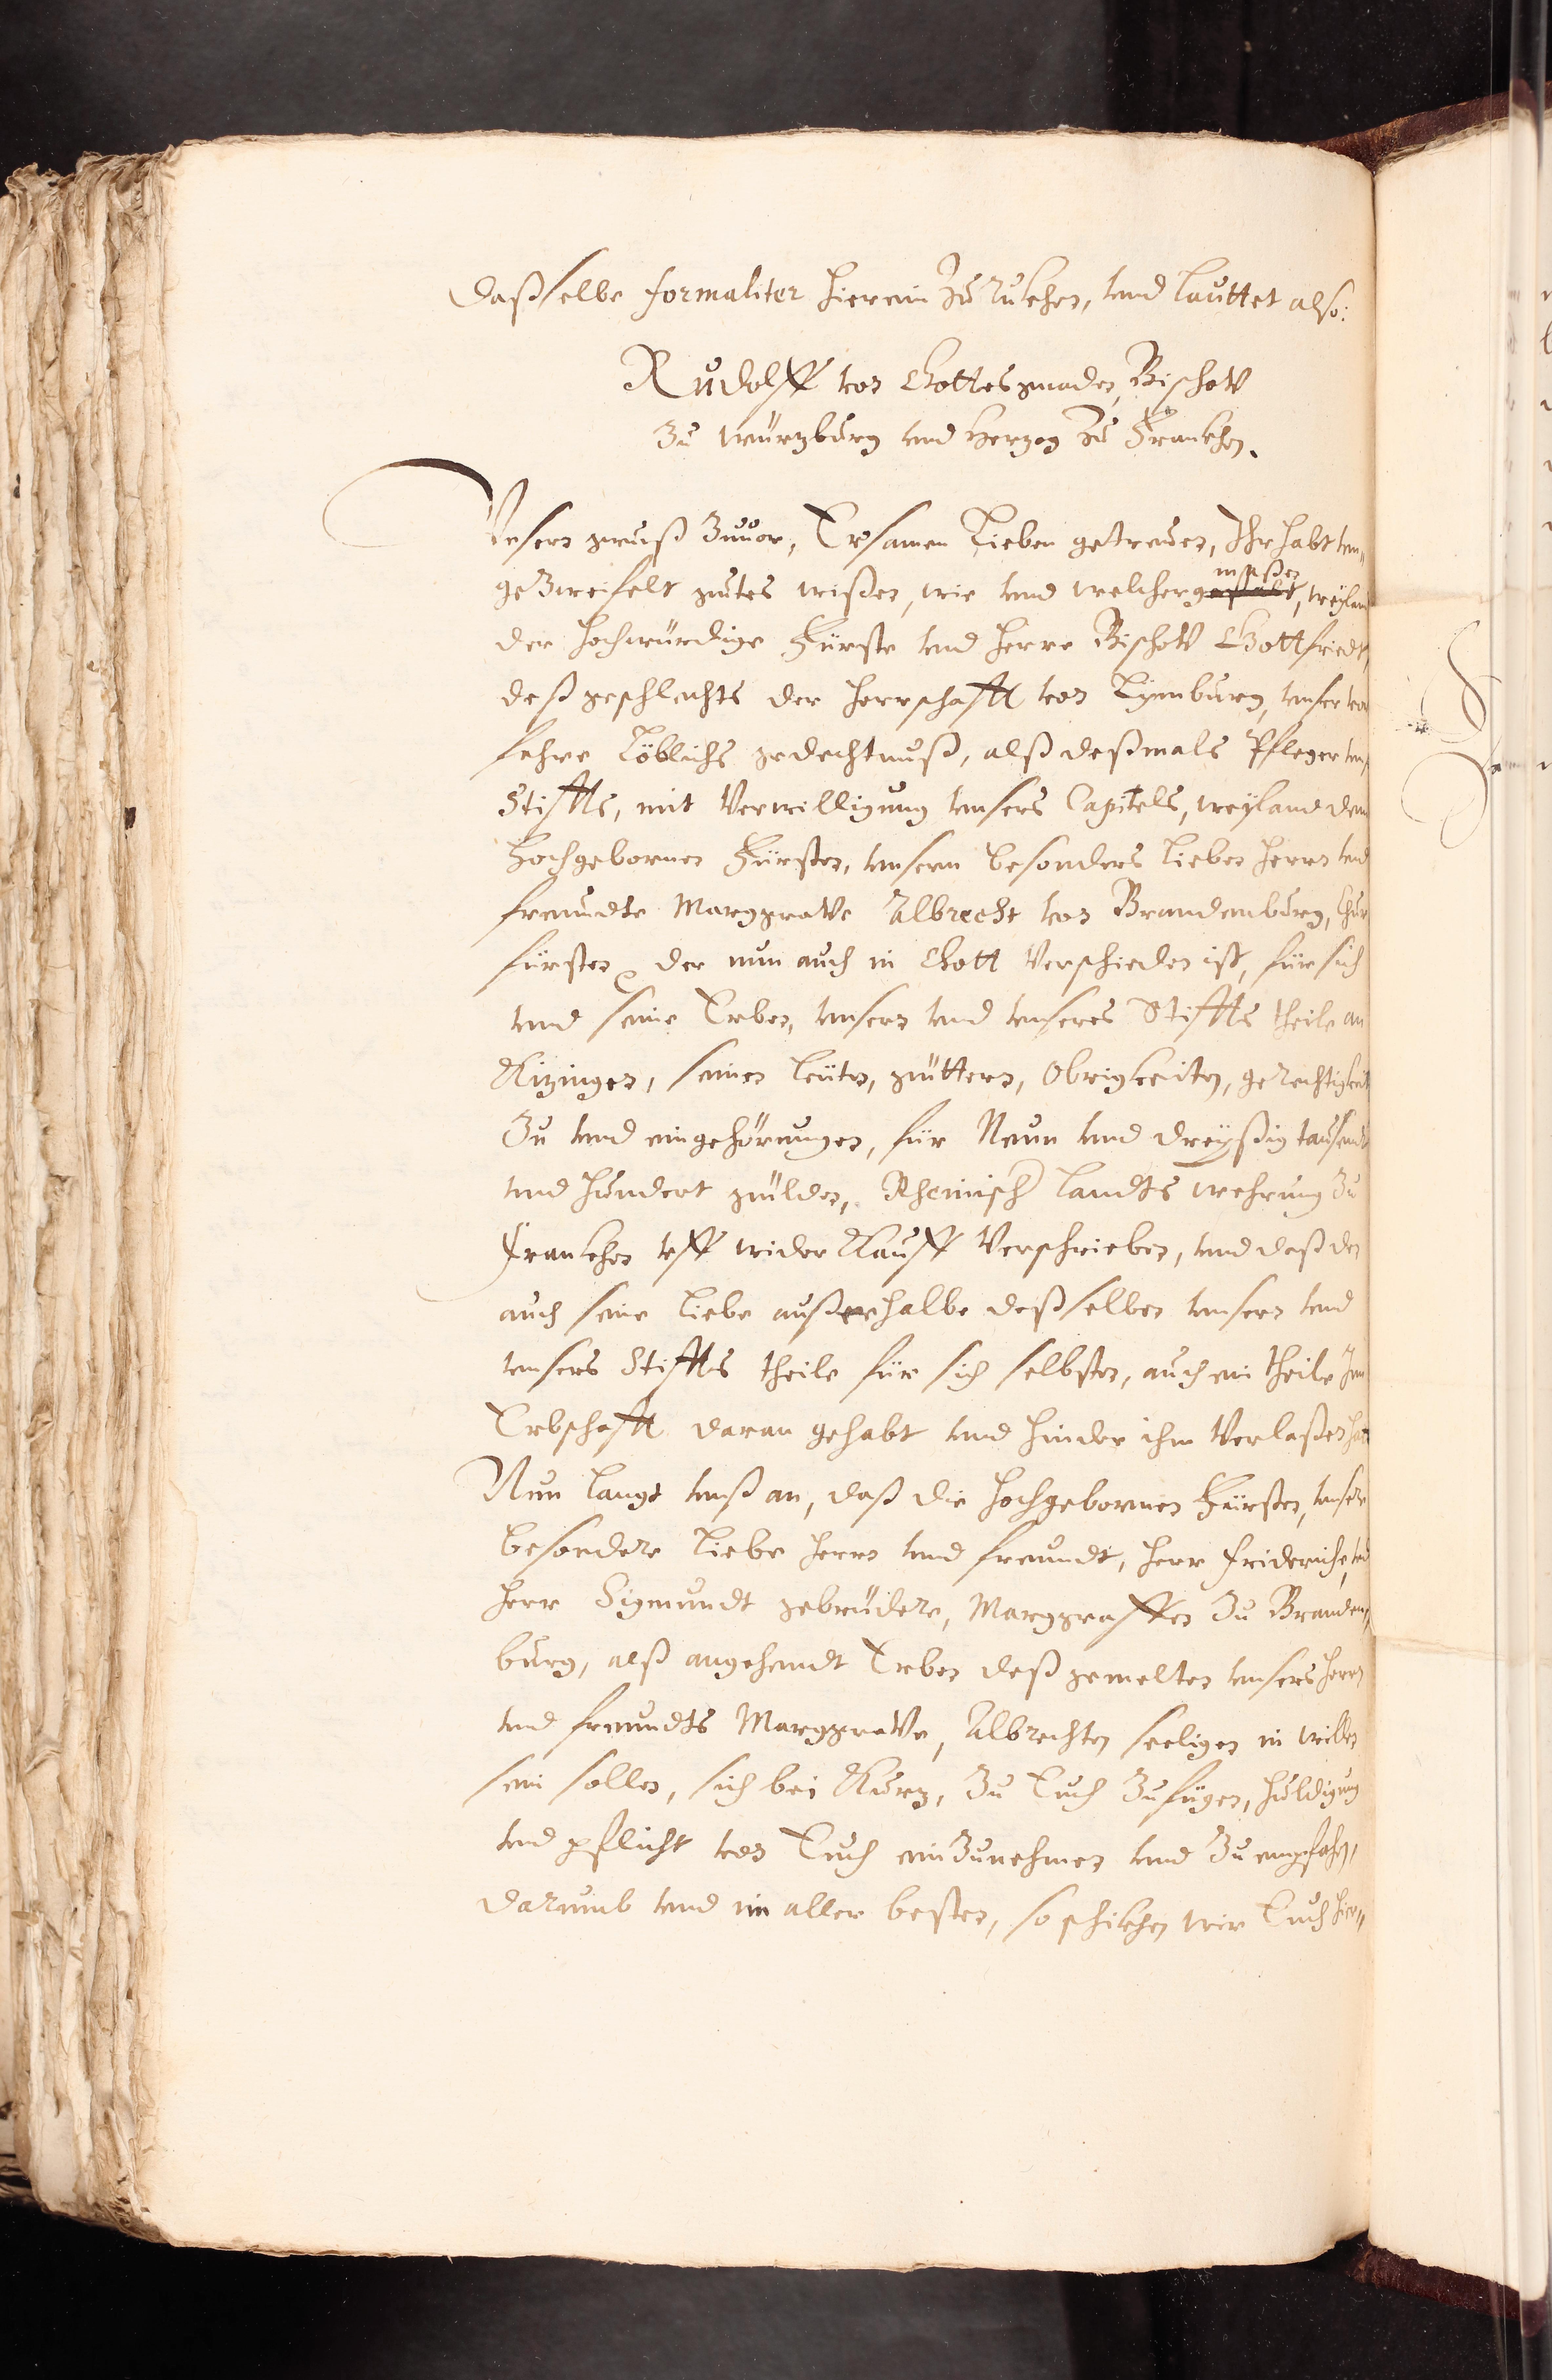 daßselbe formaliter hierein zu rukhen, vnd lauttet also:
Rudolff von Gottes gnaden, Bischov
zu würzburg vnd Herzog zu Frankhen.
Vnsern gruß zuuor, Ersamen Lieben getreuen, Ihr habt vn„
gezweifelt gutes wißen, wie vnd welchergestalt maßen, weylan
der hochwürdige Fürste vnd Herre Bischov Gottfriedt,
deß geschlechts der Herrschafft von Lymburg, vnser vor
fahre Löblichs gedechtnuß, alß deßmals Pfleger vns
Stiffts, mit Verwilligung vnsers Capitels, weyland dem
hochgebornen Fürsten, vnserm besonders Lieben Herrn vnd
freundte Marggrave Albrecht von Brandenburg, Chur
fürsten, der nun auch in Gott Verschieden ist, für sich
vnd seine Erben, vnsern vnd vnseres Stiffts theile an
Kizingen, seinen leüten, güttern, Obrigkeiten, gerechtigkeit
zu vnd eingehörungen, für Neun vnd dreyßig tausendt
vnd hundert gulden, Rheinisch landts wehrung zu
Frankhen vff wider Kauff Verschrieben, vnd deß den
auch seine Liebe außerhalbe deßselben vnsern vnd
vnsers Stiffts theile für sich selbsten, auch ein theile Jm
Erbschafft daran gehabt vnd hinder ihm Verlaßen hat
Nun langt vnß an, daß die hochgebornen Fürsten, vnsere
besondere Liebe Herrn vnd freundt, Herr Friderich, vnd
Herr Sigmundt gebrüdere, Marggraffen zu Branden„
burg, alß angehendt Erben deß gemelten vnsers Herrn
vnd freundts Marggrave, Albrechten seeligen in willen
sein sollen, sich bei Kurz, zu Euch zufügen, huldigung
vnd pflicht von Euch einzunehmen vnd zu empfahen,
darumb vnd im aller besten, so schikhen wir Euch hier„